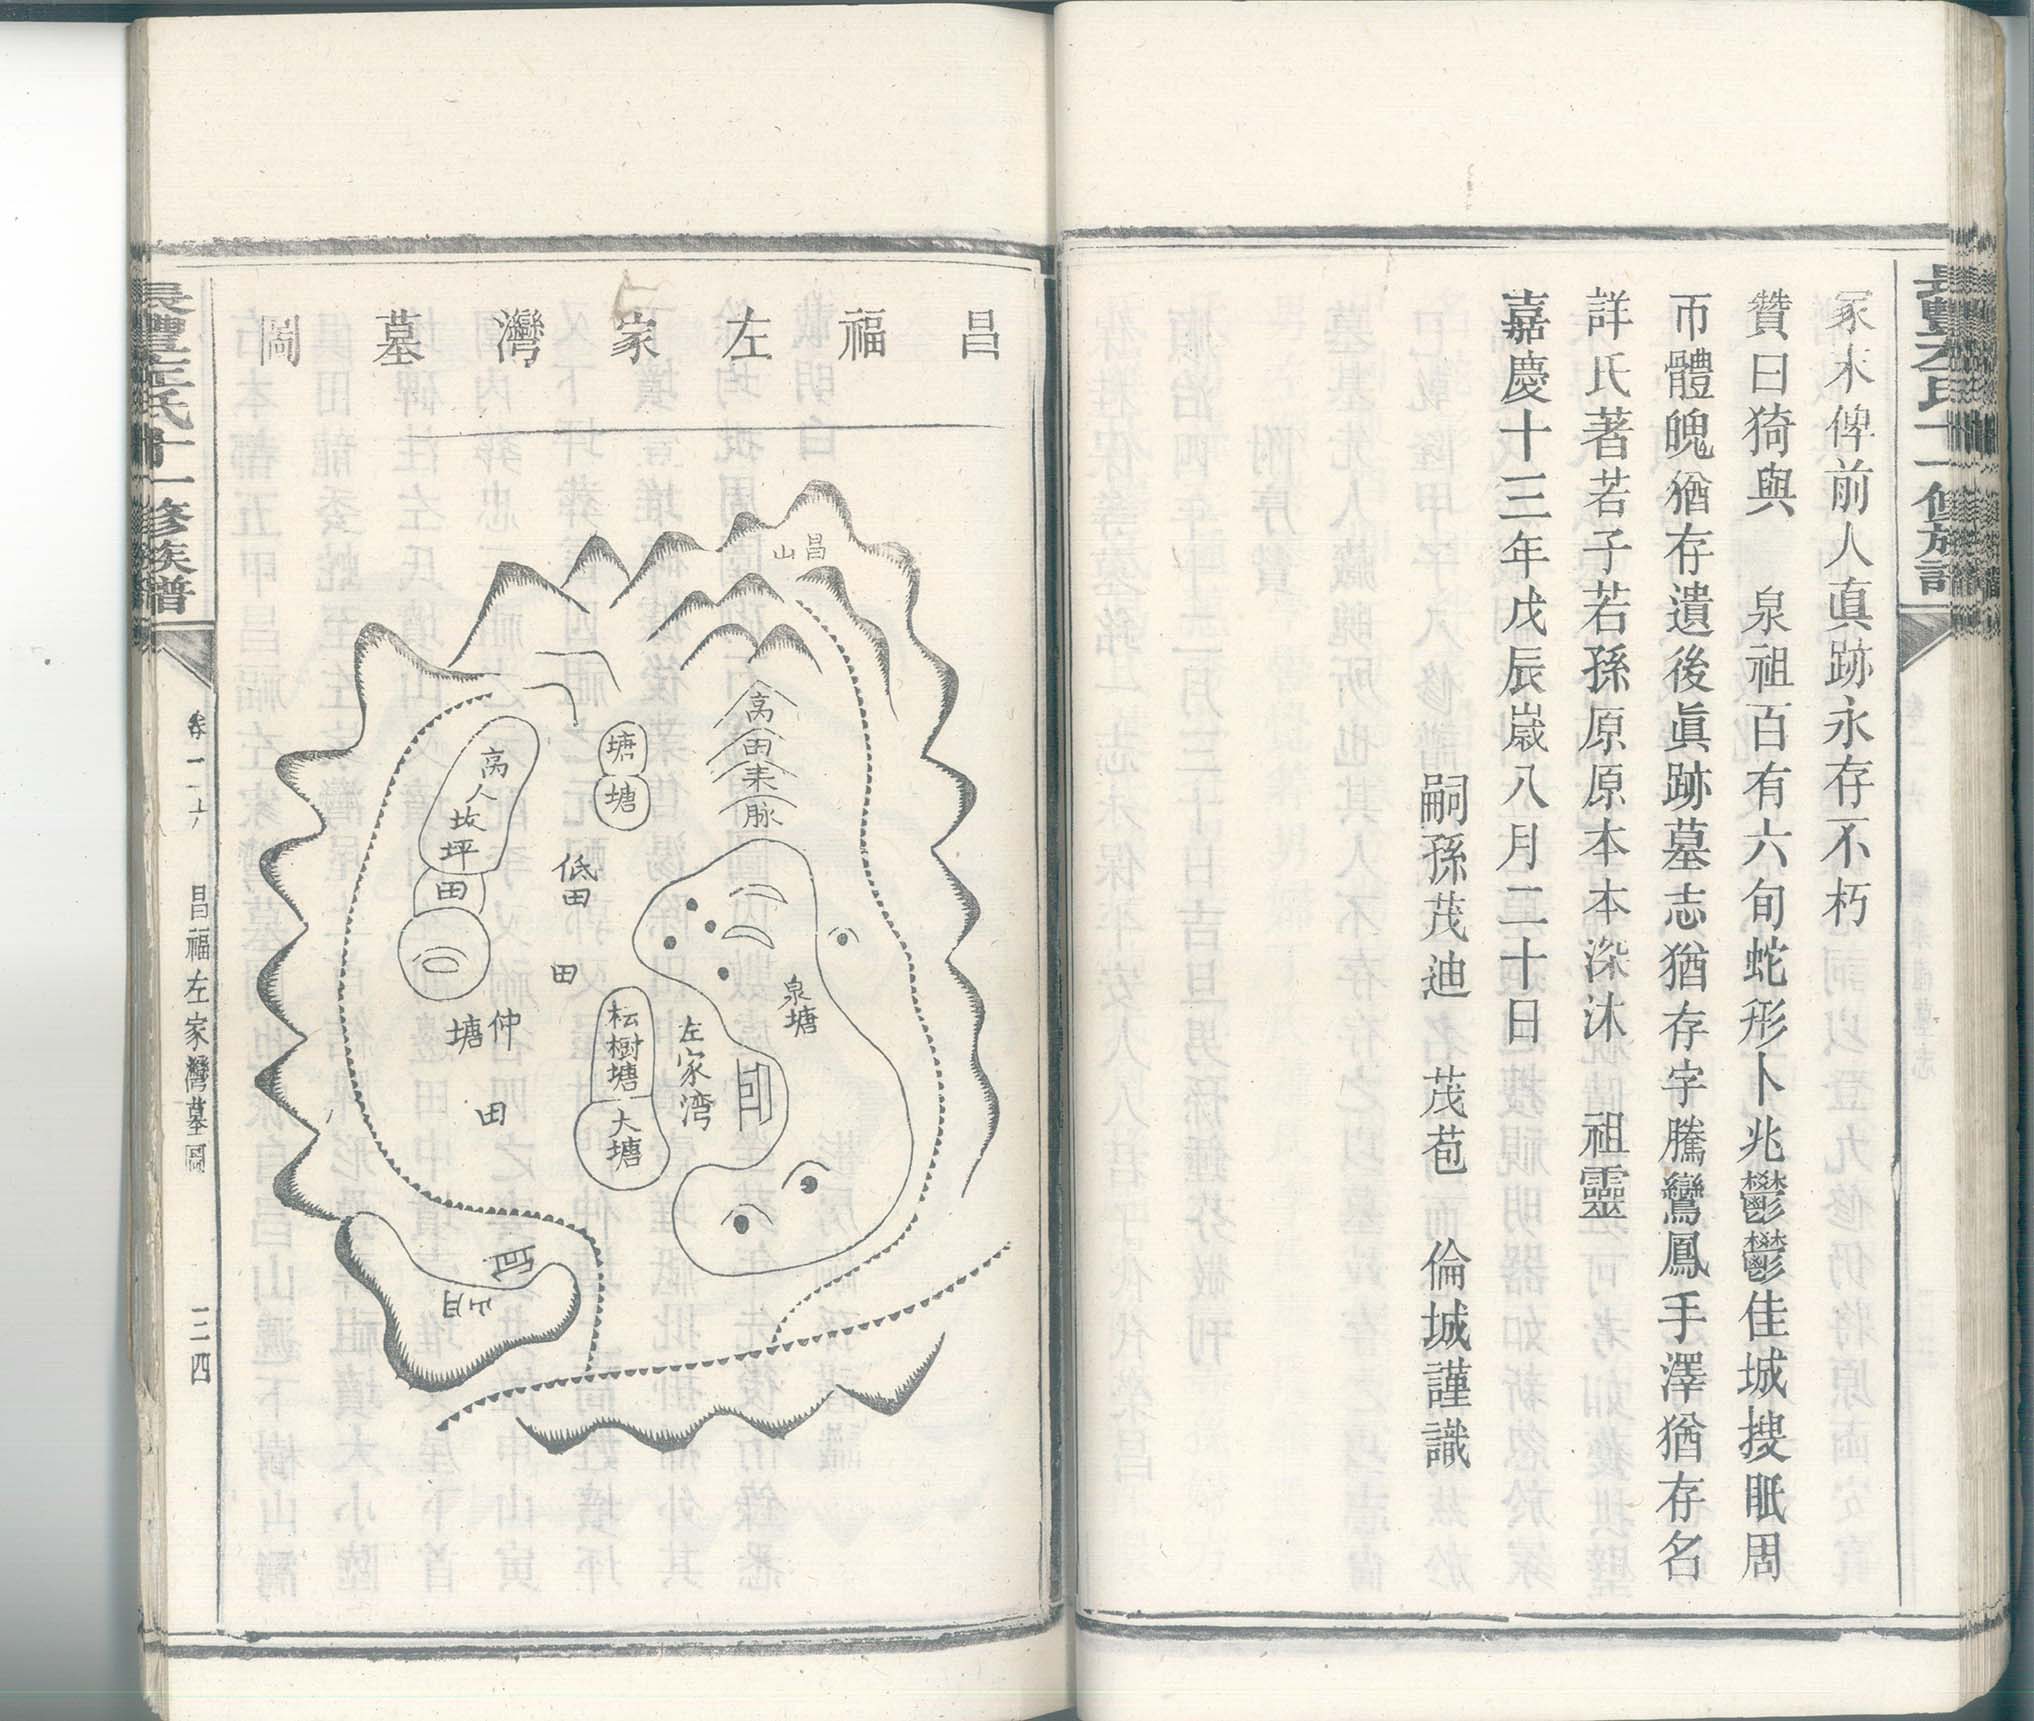 冡末俾前人真跡永存不朽
贊曰猗與　泉祖百有六旬蛇形卜兆鬱鬱佳城搜眠周
帀體魄猶存遺後眞跡墓志猶存字騰鸞鳳手澤猶存名
詳氏著若子若孫原原本本深沐　祖靈
嘉慶十三年戊辰歲八月二十日
嗣孫茂迪　茂苞　倫城謹識
昌福左家灣墓圖
昌山
高田来脉
塘
塘
高人坎坪
田
低田
田
泉塘
仲塘
田
松樹塘
大塘
左家湾
月山
昌福左家灣墓圖
三四